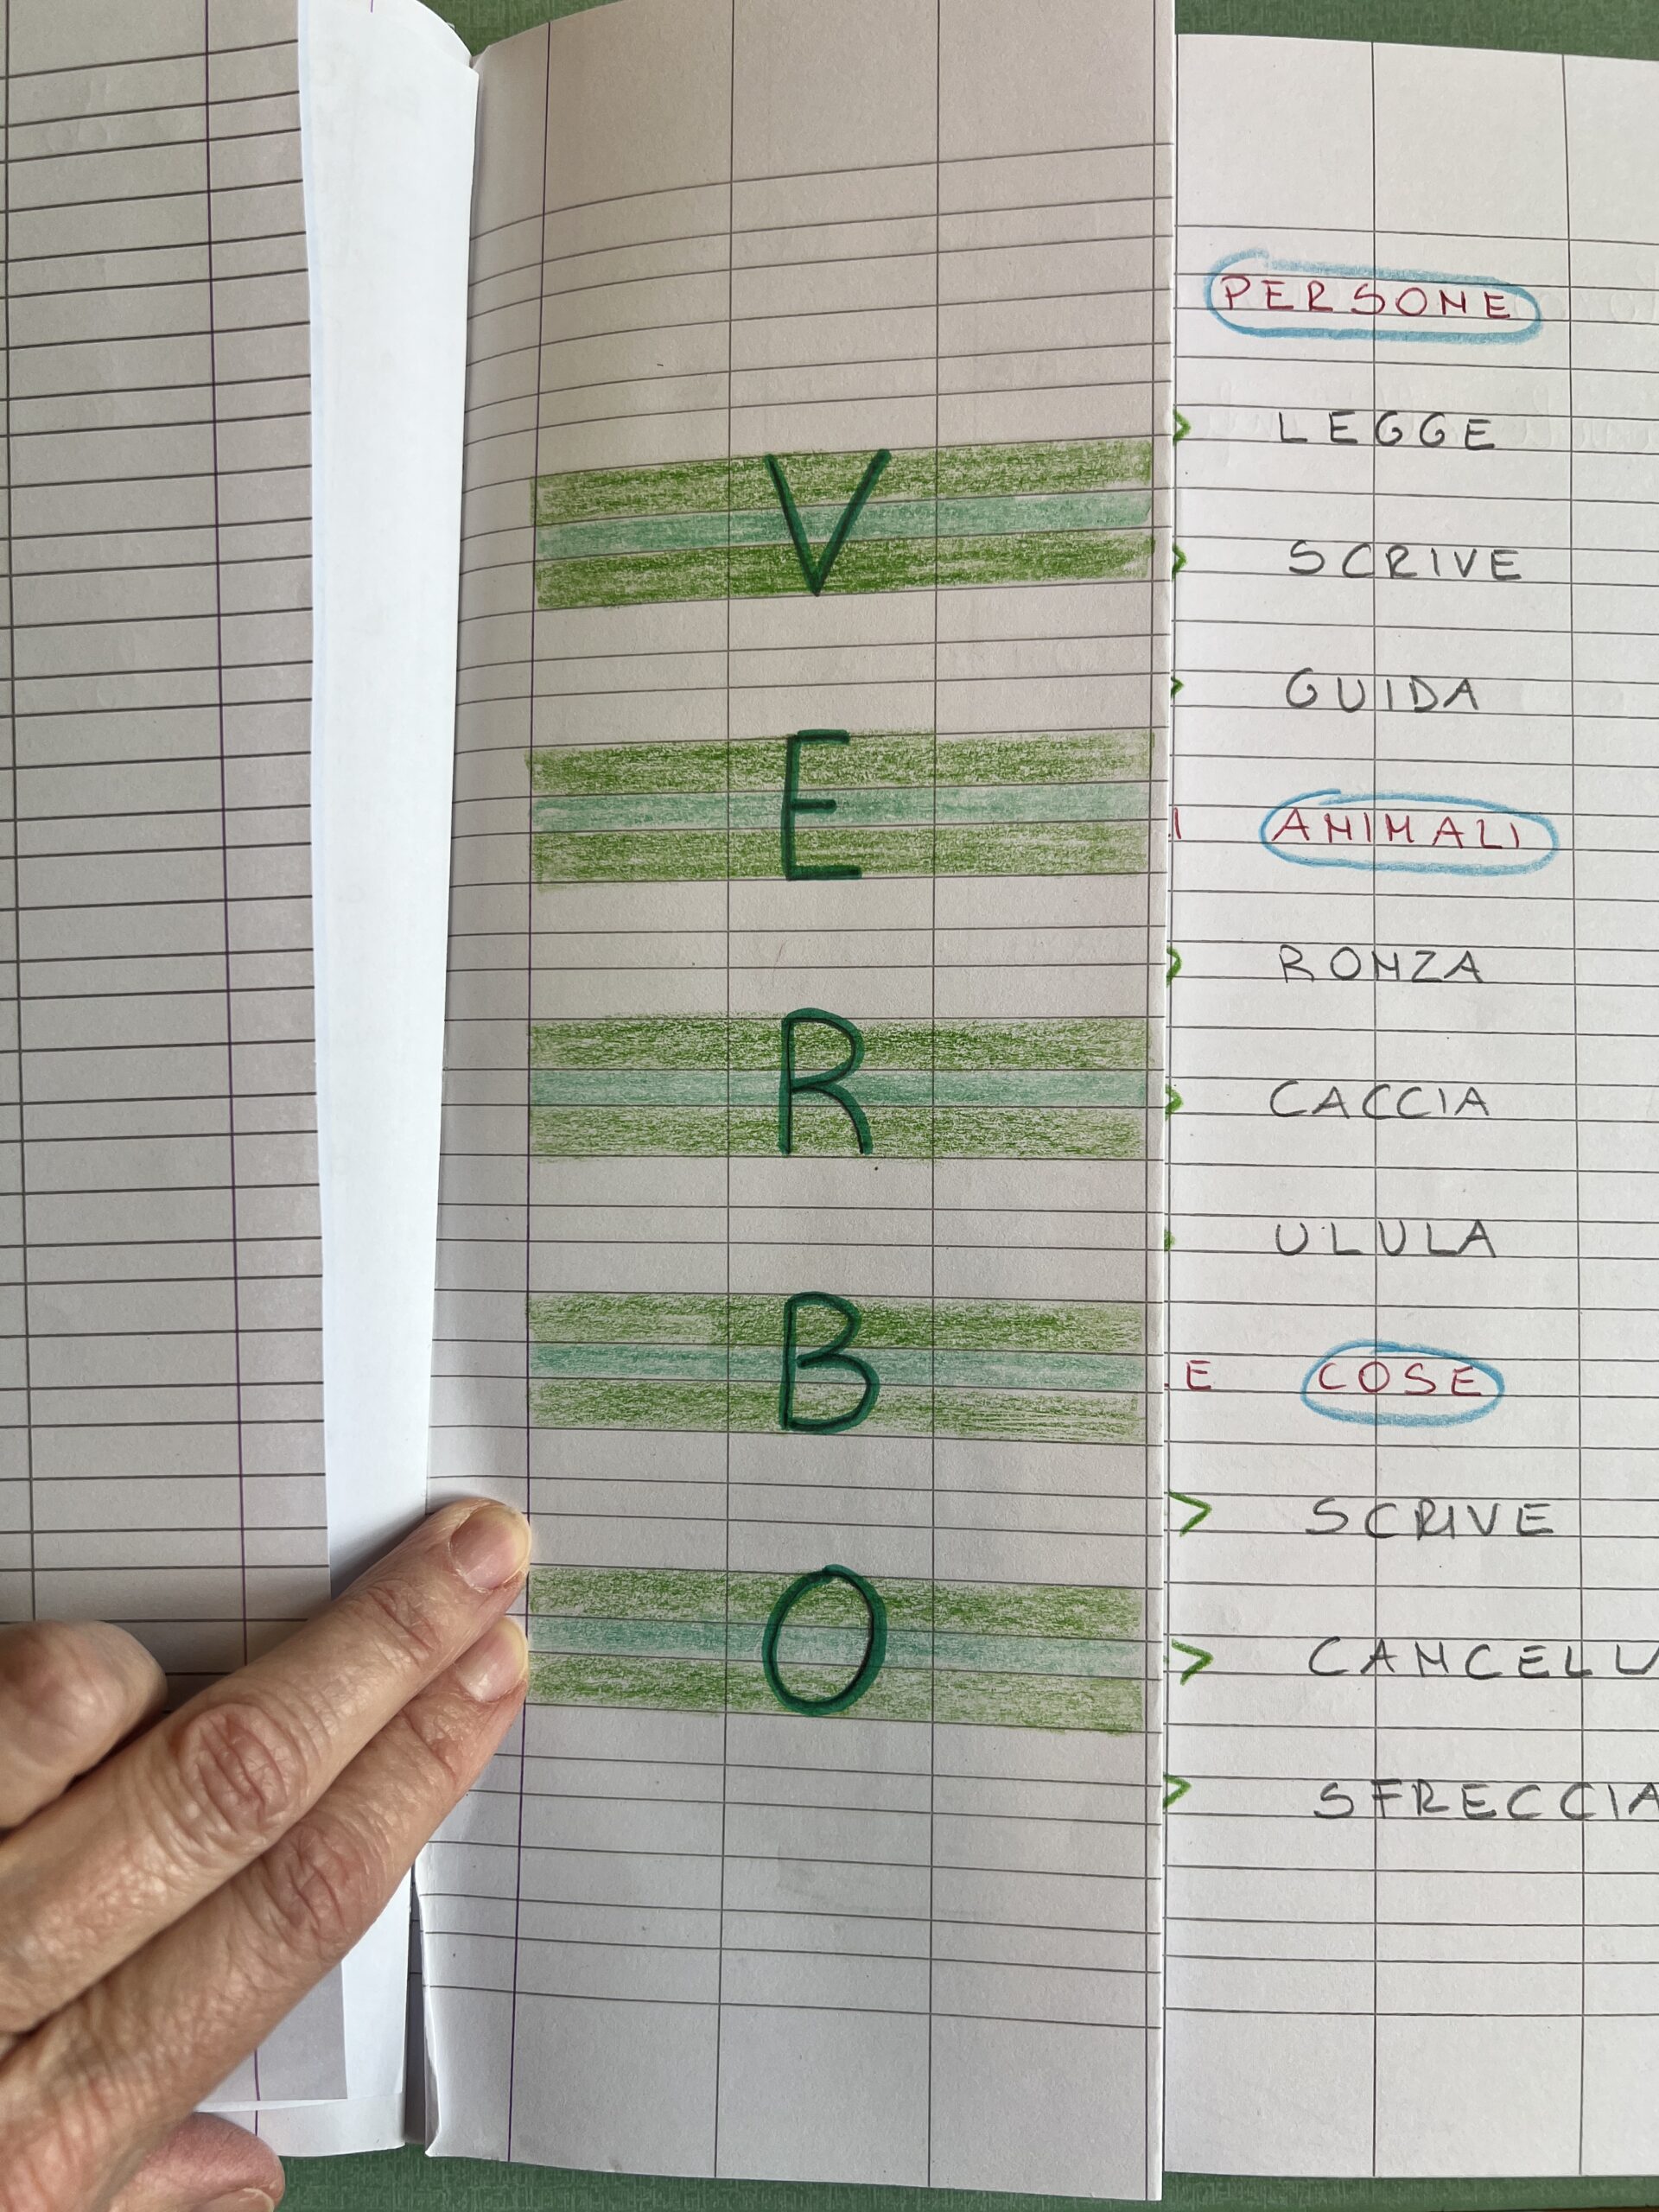 V
E
R
B
O
PERSONE
> LEGGE
> SCRIVE
> GUIDA
I ANIMALI
> RONZA
> CACCIA
> ULULA
E COSE
> SCRIVE
> CANCELL
> SFRECCIA